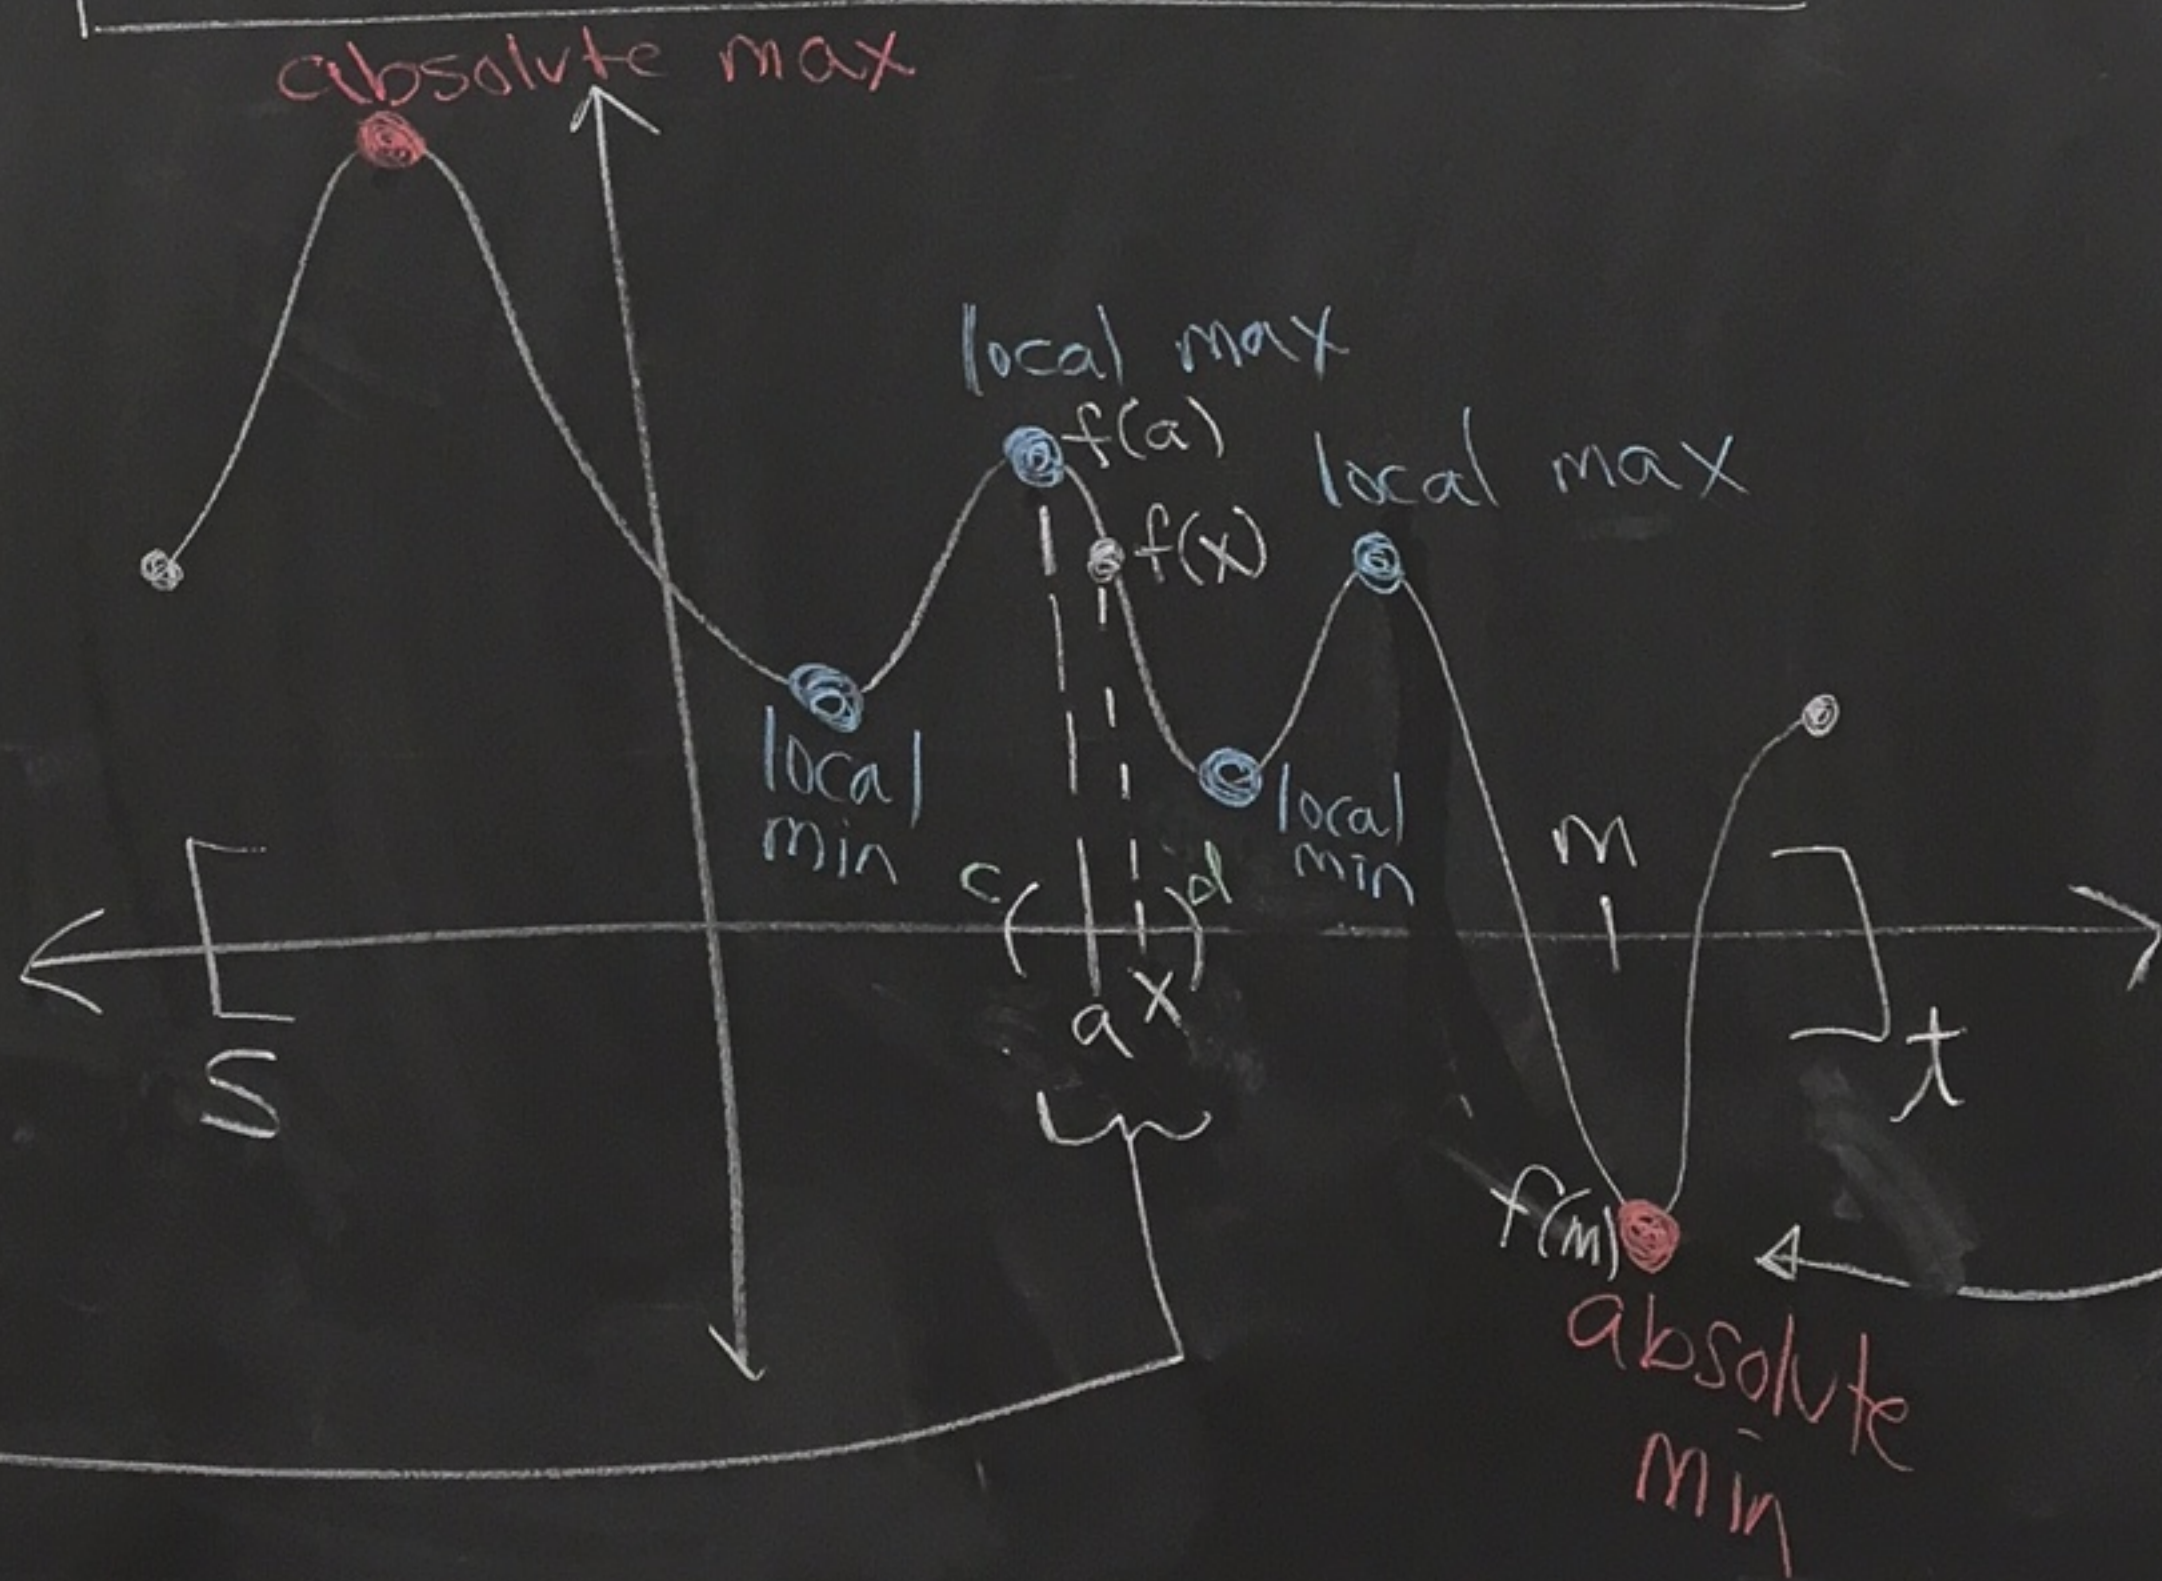 absolute max
local max
f(a)
local max
f(x)
local
min
local
min
m
c ( ) d
[
]
a x
s
t
f(m)
absolute
min